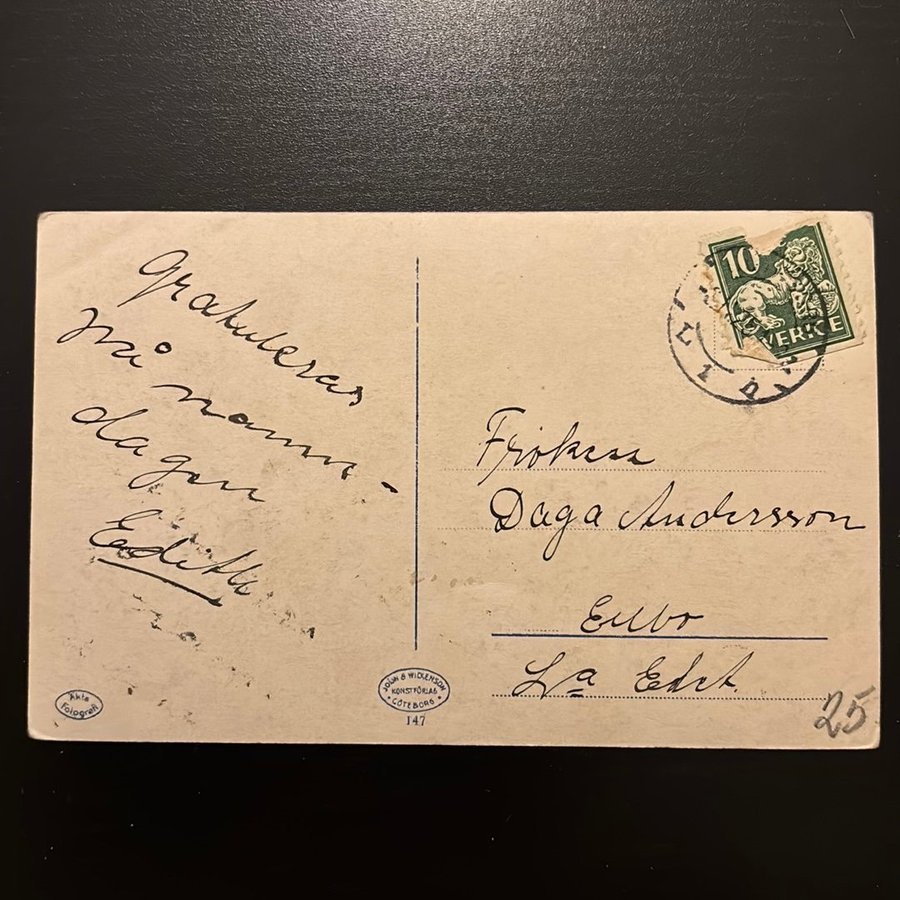 Gratuleras
på namns-
dagen
Edith
Äkta
Fotografi
JOHN & WIDLENSON
KONSTFÖRLAG
GÖTEBORG
147
10
SVERIGE
Fröken
Daga Andersson
La Edet.
25